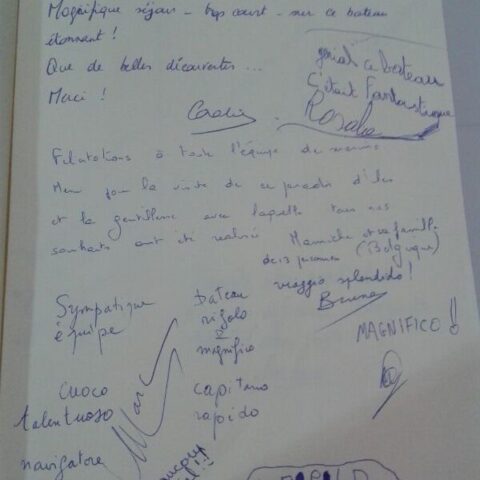 Magnifique séjour - trop court - sur ce bateau
étonnant !
Que de belles découvertes ...
Merci !
génial ce bateau
C'était fantastique
Rosalie
Félicitations à toute l'équipe
Merci pour la visite de ce paradis d'îles
et la gentillesse avec laquelle tous nos
souhaits ont été réalisés
et sa famille
de 13 personnes (Belgique)
viaggio splendido !
Bruno
MAGNIFICO !!
Sympatique
équipe
bateau
rigolo
magnifico
cuoco
talentuoso
capitano
rapido
navigatore
Marc